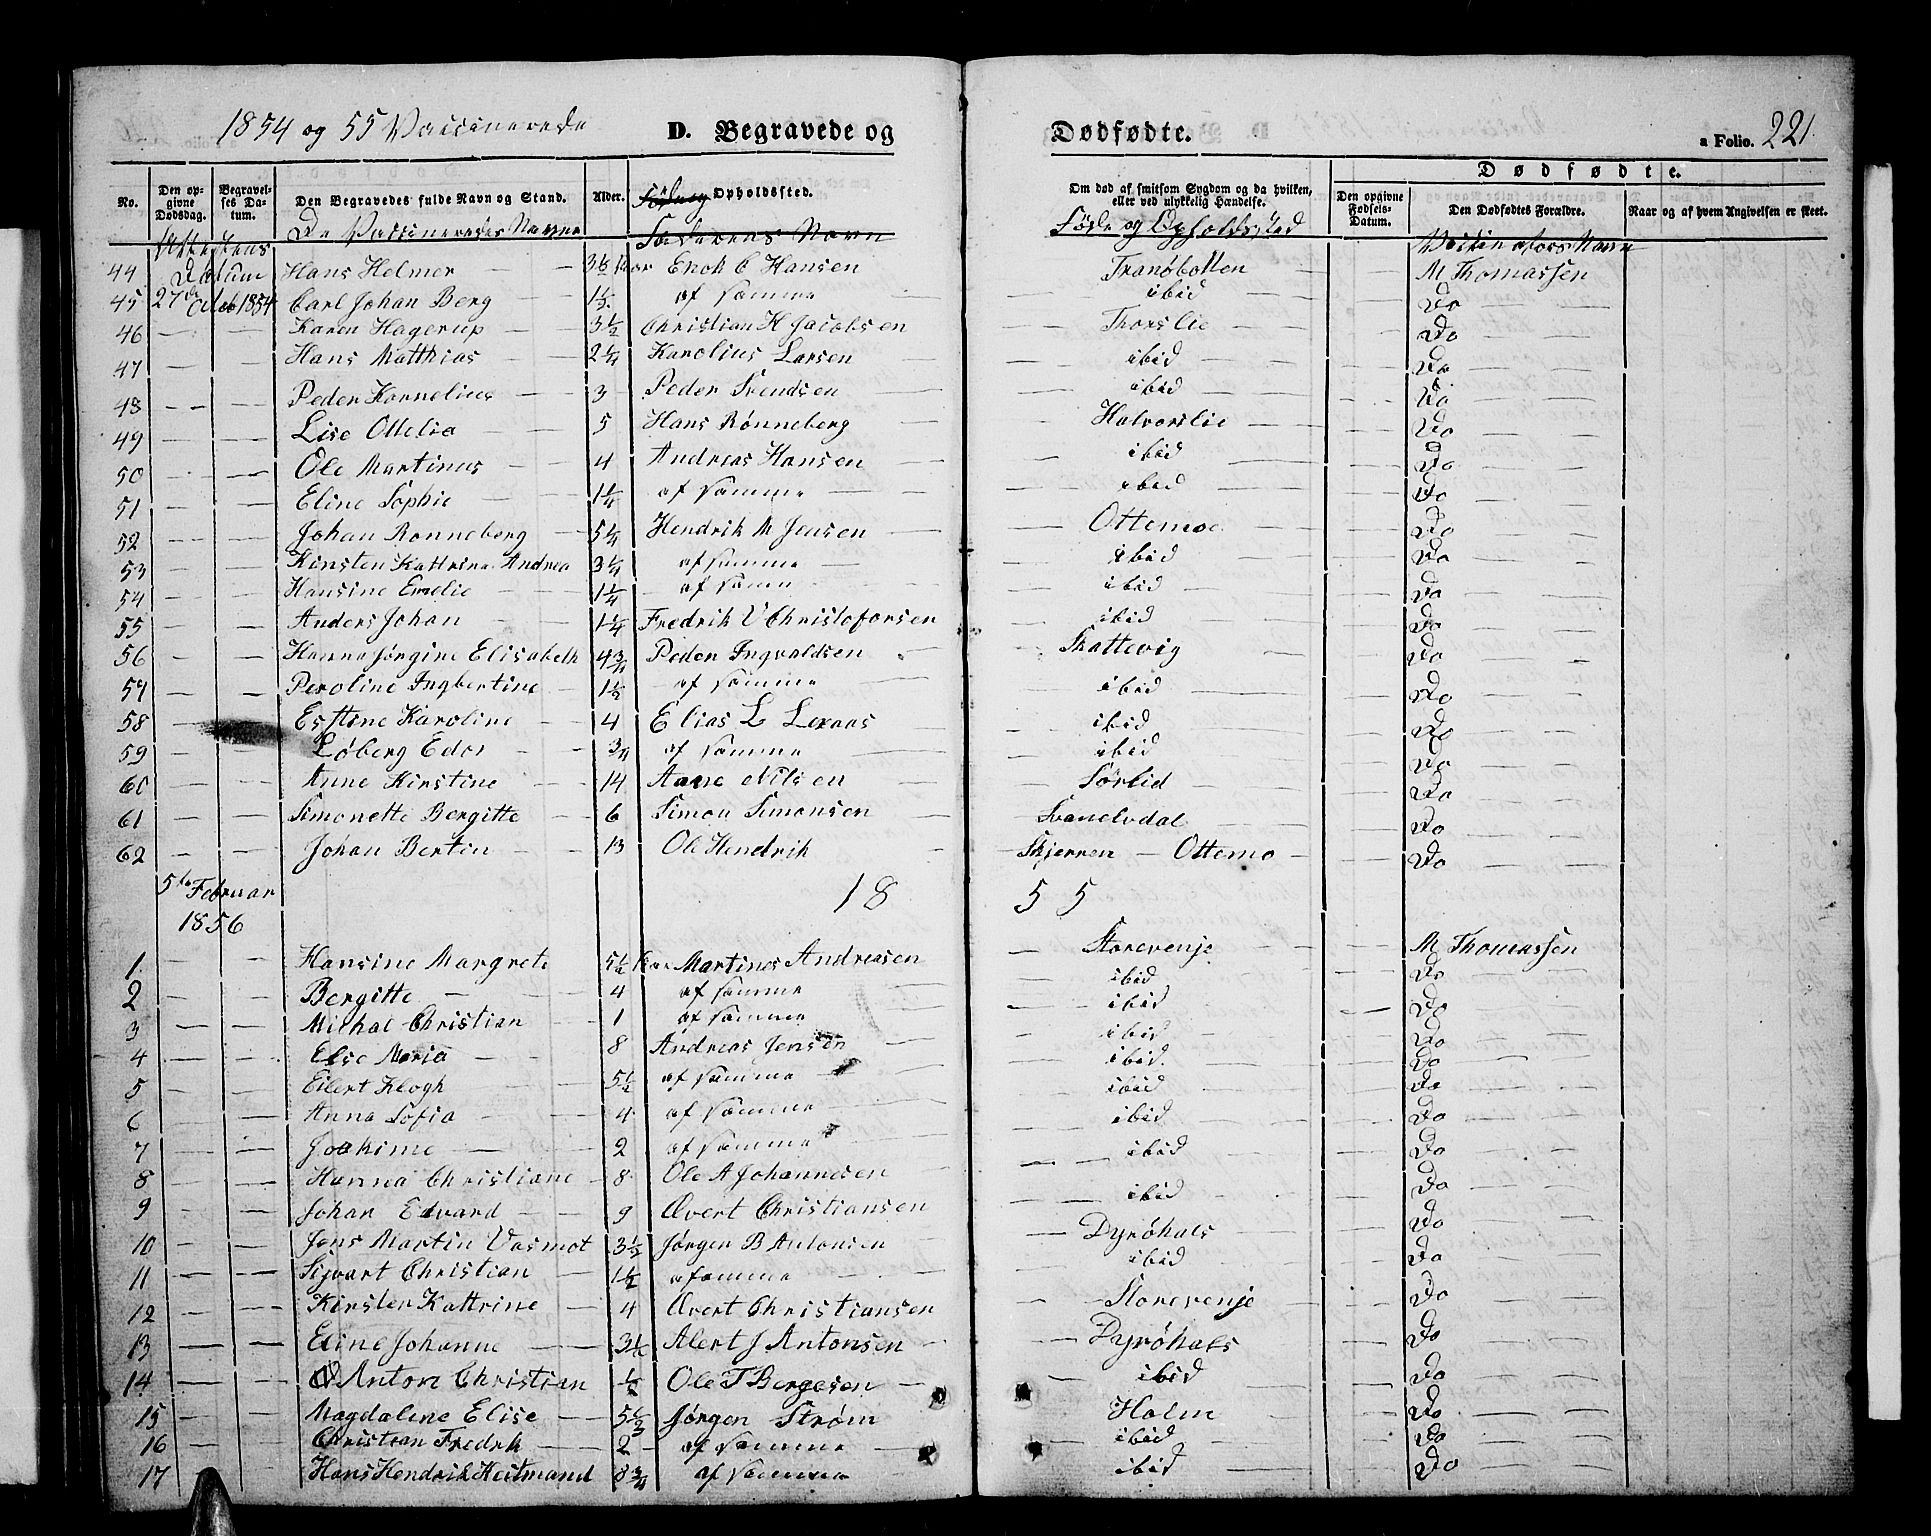 1854 og 55 Vaccinerede D. Begravede og Dødfødte. a Folio. 221.
No. Den opgivne Dødsdag. Begravelses Datum. Den Begravedes fulde Navn og Stand. Alder. Opholdssted. Om død af smitsom Sygdom og da hvilken, eller ved ulykkelig Hændelse. Dødfødte. Den opgivne Fødsels-Datum. Den Dødfødtes Forældre. Naar og af hvem Angivelsen er skeet.
Attestens Datum De Vaccineredes Navne Faderens Navn Føde og Opholdssted Vaccinators Navn
44 Hans Helmer 3 1/2 Aar Enok C Hansen Tranöbotten M Thomassen
45 27de Octob 1854 Carl Johan Berg 1 1/2 af samme ibid Do
46 Karen Hagerup 3 1/2 Christian H Jacobsen Thorslie Do
47 Hans Matthias 2 1/4 Karolius Larsen ibid Do
48 Peder Kornelius 3 Peder Svendsen ibid Do
49 Lise Ottelia 5 Hans Rønneberg Halvorslie Do
50 Ole Martinus 4 Andreas Hansen ibid Do
51 Eline Sophie 1 1/4 af samme ibid Do
52 Johan Ronneberg 5 1/4 Hendrik M Jensen Ottemoe Do
53 Kirsten Kattrina Andrea 3 1/4 af samme ibid Do
54 Hansine Emelie 1 1/4 af samme ibid Do
55 Anders Johan 1 1/4 Fredrik V Christofersen ibid Do
56 Hanna Jørgine Elisabeth 4 3/4 Peder Ingvaldsen Skattevig Do
57 Peroline Ingbertine 1 1/2 af samme ibid Do
58 Estine Karoline 4 Elias L Lexaas ibid Do
59 Løberg Edor 3/4 af samme ibid Do
60 Anne Kirstine 14 Aane Nilsen Sørlid Do
61 Simonette Bergitte 6 Simon Simonsen Svanelvdal Do
62 Johan Bertin 13 Ole Hendrik Skjerren Ottemo Do
5te Februar 1856 18 55
1 Hansine Margrete 5 1/2 Aar Martines Andreasen Storevenje M Thomassen
2 Bergitte 4 af samme ibid Do
3 Michal Christian 1 af samme ibid Do
4 Else Maria 8 Andreas Jensen ibid Do
5 Eilert Klogh 5 1/2 af samme ibid Do
6 Anna Sofia 4 af samme ibid Do
7 Joakime 2 af samme ibid Do
8 Hanna Christiane 8 Ole A Johannesen ibid Do
9 Johan Edvard 9 Ævert Christiansen ibid Do
10 Jens Martin Vasmot 3 1/2 Jørgen B Antonsen Dyröhals Do
11 Sigvart Christian 1 1/2 af samme ibid Do
12 Kirsten Kattrine 4 Ævert Christiansen Storevenje Do
13 Eline Johanne 3 1/2 Alert J Antonsen Dyröhals Do
14 Anton Christian 1/2 Ole T Bergesen ibid Do
15 Magdalene Elise 5 1/2 Jørgen Strøm Holm Do
16 Christian Fredrik 2 af samme ibid Do
17 Hans Hendrik Heitmand 8 3/4 af samme ibid Do